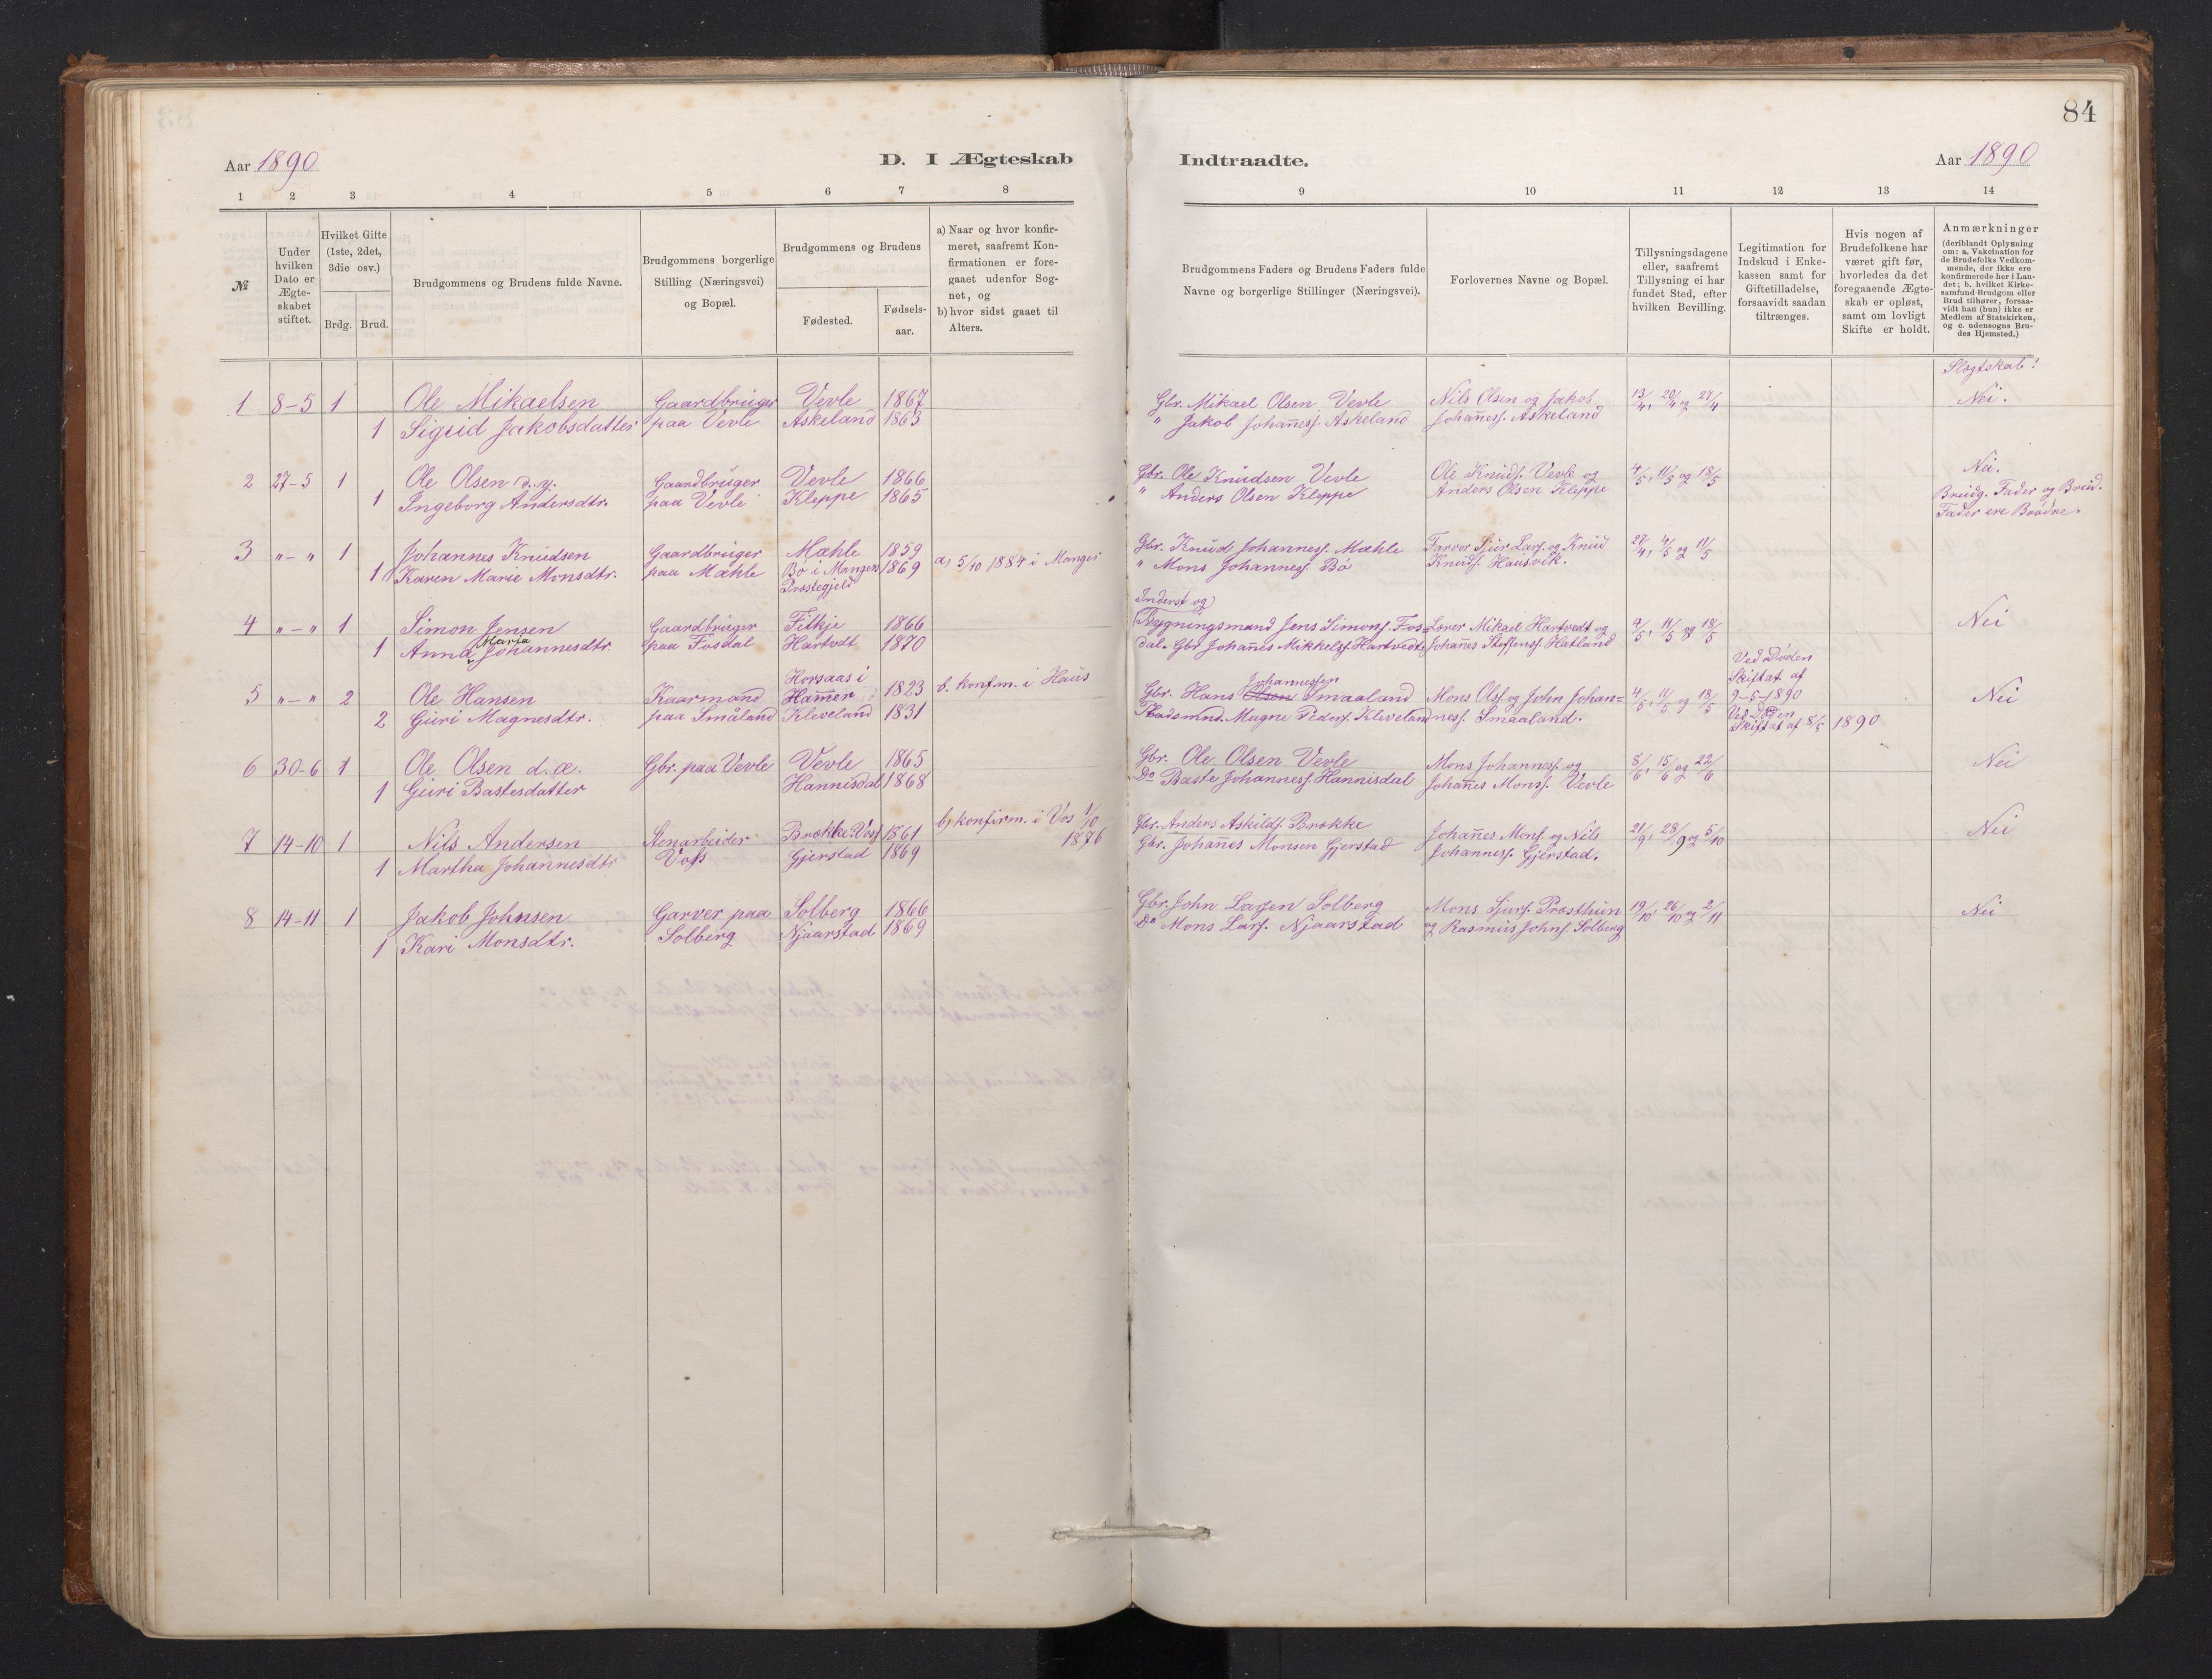 84
Aar 1890
D. I Ægteskab
Indtraadte.
Aar 1890
1 2 3 4 5 6 7 8 9 10 11 12 13 14
№
Under
hvilken
Dato er
Ægte-
skabet
stiftet.
Hvilket Gifte
(1ste, 2det,
3die osv.)
Brdg. Brud.
Brudgommens og Brudens fulde Navne.
Brudgommens borgerlige
Stilling (Næringsvei)
og Bopæl.
Brudgommens og Brudens
Fødested.
Fødsels-
aar.
a) Naar og hvor konfir-
meret, saafremt Kon-
firmationen er fore-
gaaet udenfor Sog-
net, og
b) hvor sidst gaaet til
Alters.
Brudgommens Faders og Brudens Faders fulde
Navne og borgerlige Stillinger (Næringsvei).
Forlovernes Navne og Bopæl.
Tillysningsdagene
eller, saafremt
Tillysning ei har
fundet Sted, efter
hvilken Bevilling.
Legitimation for
Indskud i Enke-
kassen samt for
Giftetilladelse,
forsaavidt saadan
tiltrænges.
Hvis nogen af
Brudefolkene har
været gift før,
hvorledes da det
foregaaende Ægte-
skab er opløst,
samt om lovligt
Skifte er holdt.
Anmærkninger
(deriblandt Oplysning
om: a. Vakcination for
de Brudefolks Vedkom-
mende, der ikke ere
konfirmerede her i Lan-
det; b. hvilket Kirke-
samfund Brudgom eller
Brud tilhører, forsaa-
vidt han (hun) ikke er
Medlem af Statskirken,
og c. udensogns Bru-
des Hjemsted.)
Slægtskab?
1 8-5 1 Ole Mikaelsen Gaardbruger Vevle 1867 Gbr. Mikael Olsen Vevle Nils Olsen og Jakob 13/4, 20/4 og 27/4 Nei.
1 Sigrid Jakobsdatter paa Vevle Askeland 1863 " Jakob Johanness. Askeland Johanness. Askeland
2 27-5 1 Ole Olsen d.y. Gaardbruger Vevle 1866 Gbr. Ole Knudsen Vevle Ole Knuds. Vevle og 4/5, 11/5 og 18/5 Nei.
1 Ingeborg Andersdtr. paa Vevle Kleppe 1865 " Anders Olsen Kleppe Anders Olsen Kleppe Brudg. Fader og Brud.
Fader ere Brødre.
3 " - " 1 Johannes Knudsen Gaardbruger Mæhle 1859 a, 5/10 1884 i Manger Gbr. Knud Johanness. Mæhle Farver Sjur Lars. og Knud 27/4, 4/5 og 11/5
1 Karen Marie Monsdtr. paa Mæhle Bø i Mangers 1869 " Mons Johanness. Bø Knuds. Hausvik.
Præstegjeld
Inderst og
4 " - " 1 Simon Jensen Gaardbruger Fitkje 1866 Bygningsmand Jens Simons. Fos- Lærer Mikael Hartvedt og 4/5, 11/5 og 18/5 Nei
Maria
1 Anna Johannesdtr paa Fosdal Hartvedt 1870 dal. Gbr Johannes Mikkels. Hartvedt Johannes Steffens. Hatland
Ved Døden
Horsaas i b. konfm. i Haus Johannessen Skiftet af
5 " - " 2 Ole Hansen Kaarmand Hammer 1823 Gbr. Hans Olsen Smaaland Mons Ols. og John Johan- 4/5, 11/5 og 18/5 9-5-1890 Nei
2 Guri Magnesdtr. paa Småland Kleveland 1831 Magne Peders. Kleveland ness. Smaaland. Ved Døden
Skiftet af 8/5 1890
6 30-6 1 Ole Olsen d.æ. Gbr. paa Vevle Vevle 1865 Gbr. Ole Olsen Vevle Mons Johanness. og 8/6, 15/6 og 22/6 Nei
1 Guri Bastesdatter Hannisdal 1868 Do Baste Johanness. Hannisdal Johannes Mons. Vevle
b) konfirm. i Vos 1/10
7 14-10 1 Nils Andersen Stenarbeider Brække Voss 1861 1876 Gbr. Anders Askilds. Brække Johannes Mons. og Nils 21/9, 28/9 og 5/10 Nei
1 Martha Johannesdtr Voss Gjerstad 1869 Gbr. Johannes Monsen Gjerstad Johanness. Gjerstad.
8 14-11 1 Jakob Johnsen Garver paa Solberg 1866 Gbr. John Larsen Solberg Mons Sjurs. Præsthun 19/10, 26/10 og 2/11 Nei
1 Kari Monsdtr. Solberg Njaarstad 1869 Do Mons Lars. Njaarstad og Rasmus Johns. Solberg